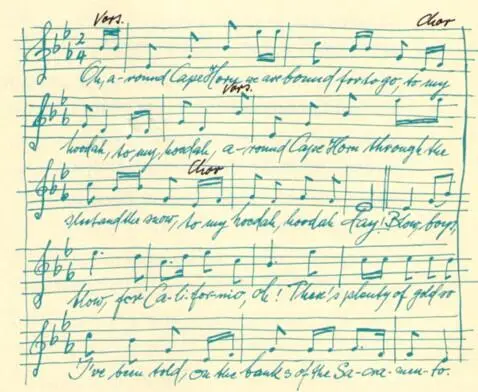 Vors. Chor
2 4
Oh, a-round Cape Horn we are bound for to go, to my
Vors.
hoodah, to my, hoodah, a-round Cape Horn through the
Chor
sleet and the snow, to my hoodah, hoodah day! Blow, boys,
blow, for Ca-li-for-nio, oh! There's plenty of gold so
I've been told, on the banks of the Sa-cra-men-to.